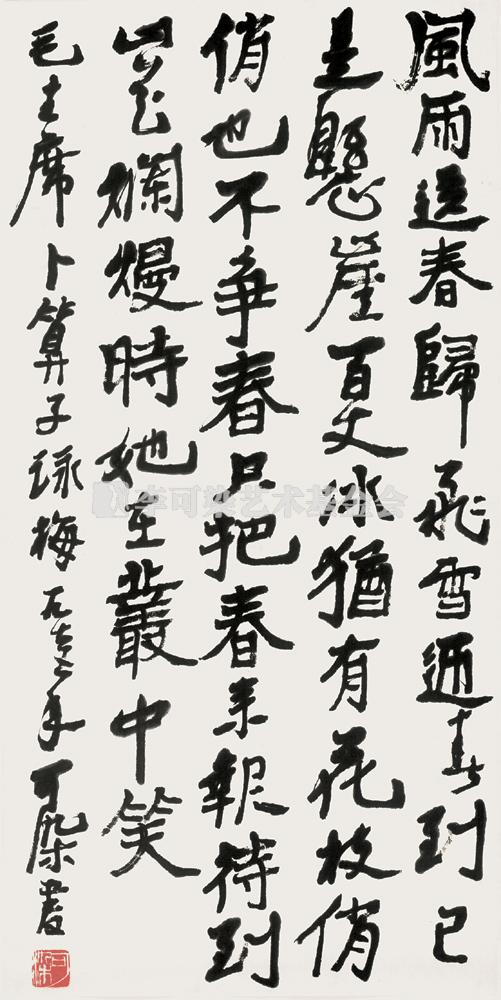 風雨送春歸飛雪迎春到已
是懸崖百丈冰猶有花枝俏
俏也不争春只把春来報待到
山花爛熳時她在叢中笑
毛主席卜算子詠梅 年可染書
可染
李可染艺术基金会